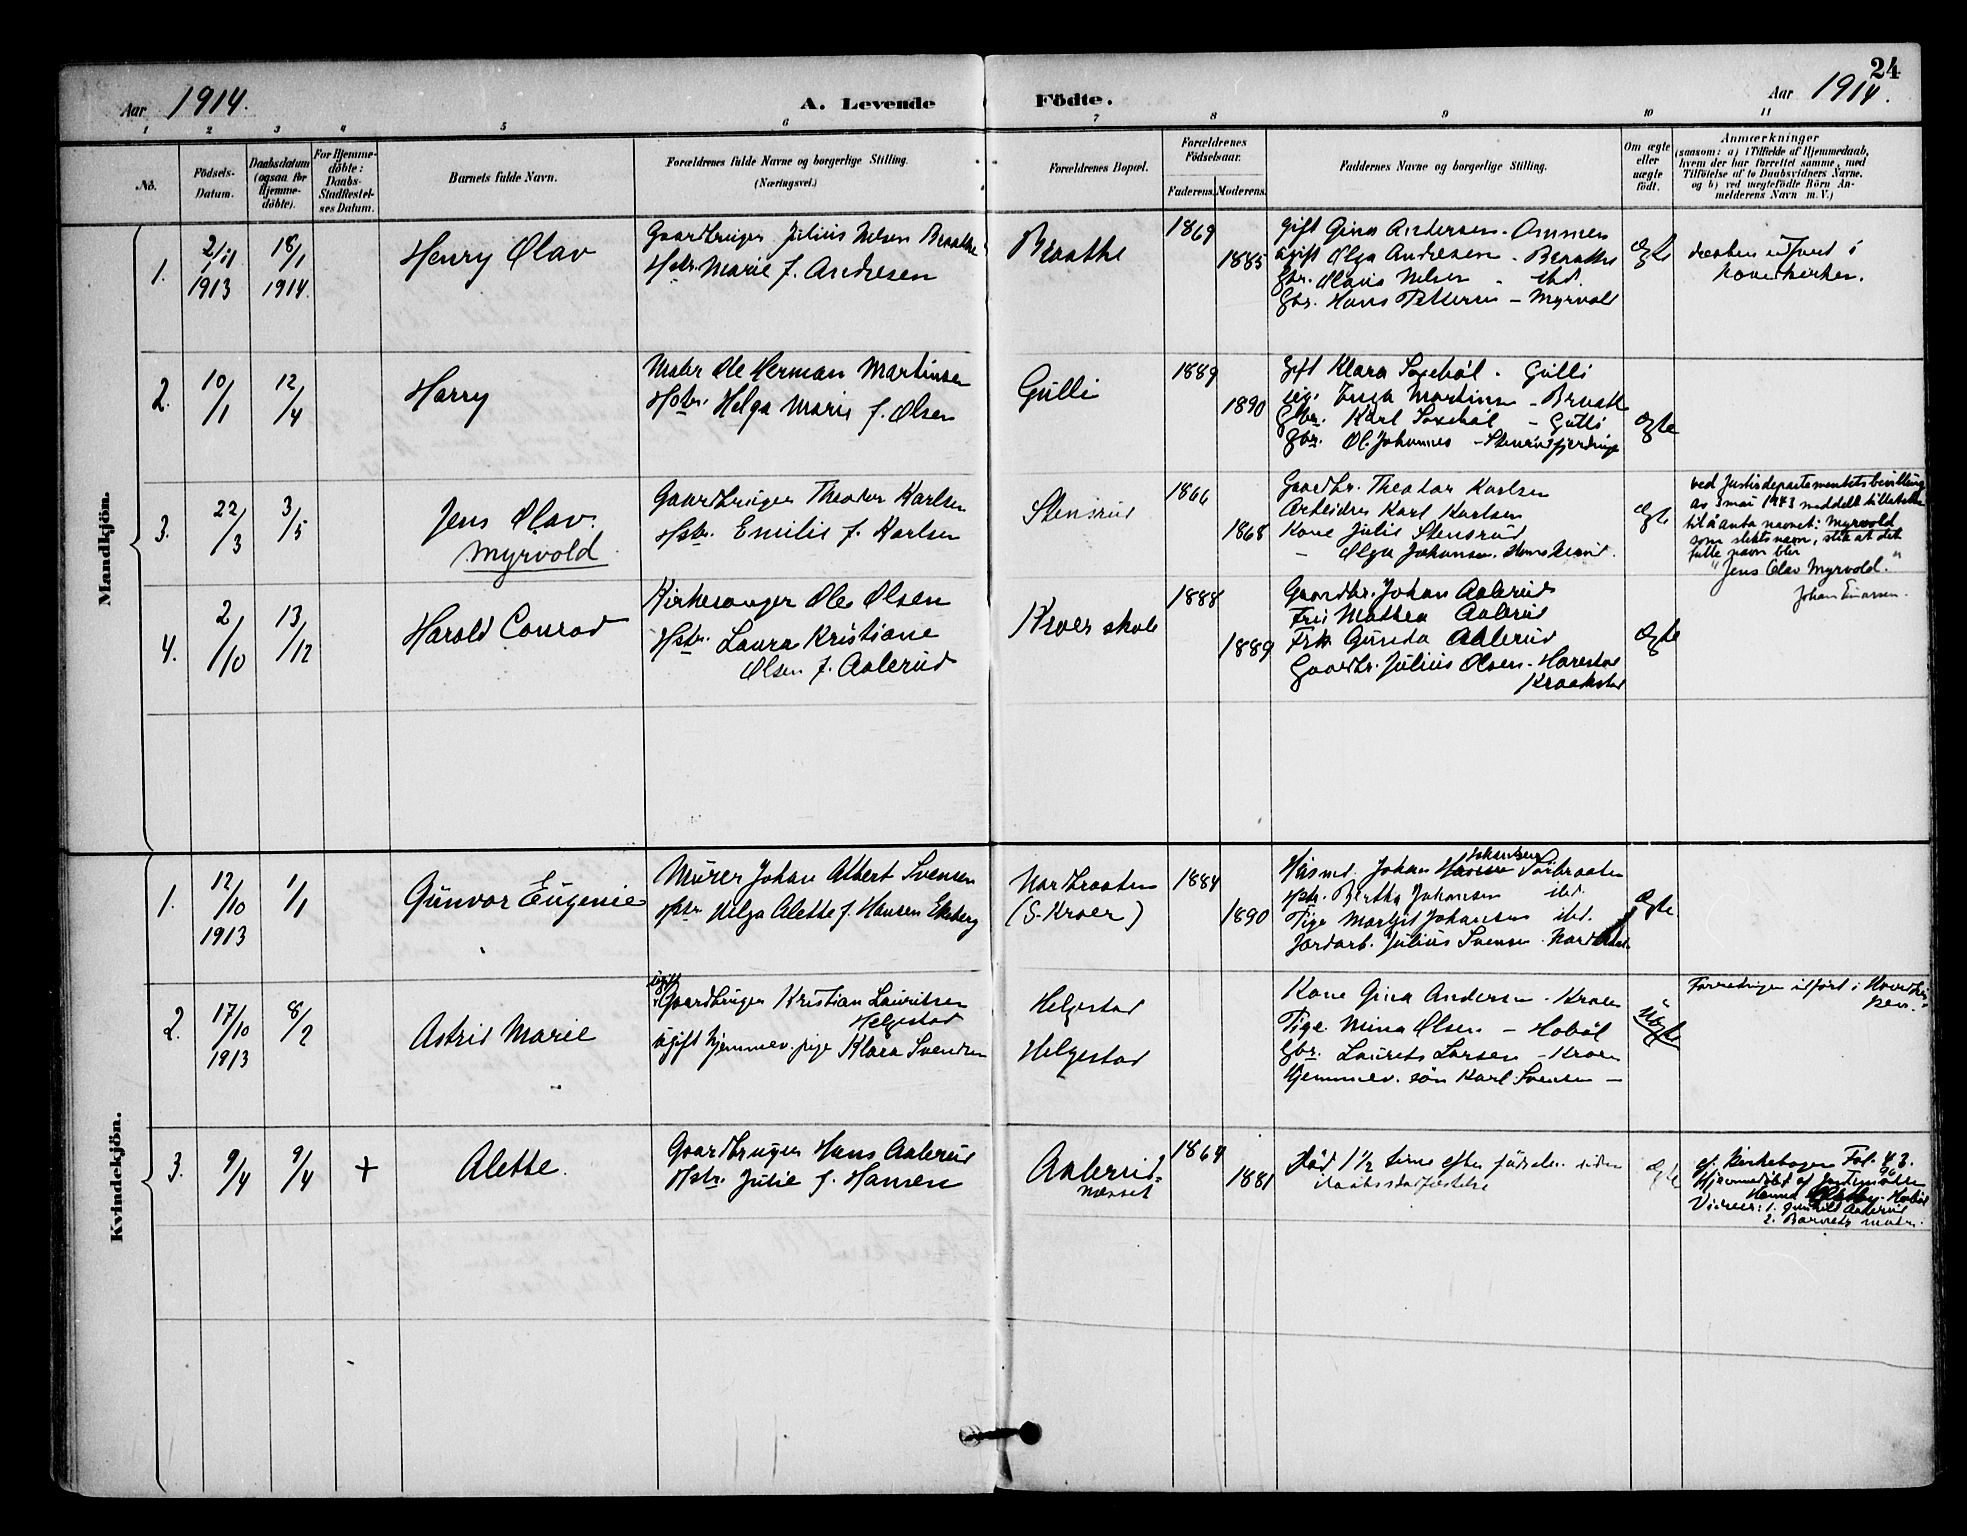 24
Aar 1914.
A. Levende Födte.
Aar 1914.
1 2 3 4 5 6 7 8 9 10 11
No.
Födsels-
Datum.
Daabsdatum
(ogsaa for
Hjemme-
döbte).
For Hjemme-
döbte:
Daabs-
Stadfæstel-
ses Datum.
Barnets fulde Navn.
Forældrenes fulde Navne og borgerlige Stilling.
(Næringsvei.)
Forældrenes Bopæl.
Forældrenes
Födselsaar.
Faderens. Moderens.
Faddernes Navne og borgerlige Stilling.
Om ægte
eller
uægte
födt.
Anmærkninger
(saasom: a) i Tilfælde af Hjemmedaab,
hvem der har forrettet samme, med
Tilföielse af to Daabsvidners Navne,
og b) ved uægtefödte Börn An-
melderens Navn m. V.)
Mandkjön.
1.
2/11
1913
18/1
1914.
Henry Olav
Gaardbruger Julius Nelsen Braathe
Hstr. Marie f. Andresen
Braathe
1869
1885
Gift Gina Andersen - Ammen
Ugift Olga Andresen - Braathe
Gbr. Olavis Nelsen - ibd.
Gbr. Hans Pettersen - Myrvold
Ægte
daaben udført i
hovedkirken.
2.
10/1
12/4
Harry
Maler Ole Herman Martinsen
Hstr. Helga Marie f. Olsen
Gulli
1889
1890
Gift Klara - Gulli
Martinsen - Braathe
Gbr. Karl - Gulli
Gbr. Ol. Johannes - Stensrudfjerdingen
Ægte
3.
22/3
3/5
Jens Olav.
Myrvold
Gaardbruger Theodor Karlsen
Hstr. Emilie f. Karlsen
Stensrud
1866
1868
Gaardbr. Theodor Karlsen
Arbeider Karl Karlsen
Kone Julie Stensrud
- Olga Johansen.
Ægte
ved Justisdepartementets bevilling
av 3 mai 1943 meddelt tillatelse
til å anta navnet: Myrvold
som slektsnavn, slik at det
fulle navn blir
"Jens Olav Myrvold."
Johan Einarsen.
4.
2/10
13/12
Harald Conrad
Kirkesanger Ole Olsen
Hstr. Laura Kristiane
Olsen f. Aalerud
Kroer skole
1888
1889
Gaardbr. Johan Aalerud
Fru Mathea Aalerud
Frk Gunda Aalerud
Gaardbr. Julius Olsen - Harestad
Kraakstad
Ægte
Kvindekjön.
1.
12/10
1913
1/1
Gunvor Eugenie
Murer Johan Albert Svensen
Hstr. Helga Alette f. Hansen Ekeberg
Nordbraaten
(S. Kroer)
1884
1890
Husmd. Johan Johansen
Hstr. Bertha Johansen ibd
Pige Margit Johansen ibd.
Jordarb. Julius Svensen
Ægte
2.
17/10
1913
8/2
Astrid Marie
ugift
Gaardbruger Kristian Lauritsen
Helgestad
ugift hjemmev. pige Klara Svendsen
Helgestad
Helgestad
Kone Gina Andersen - Kroer
Pige Mina Olsen - Hobøl
Gbr. Laurits Larsen - Kroer
Hjemmev. søn Karl Svensen -
Uægte
Forretningen udført i Hovedkir-
ken.
3.
9/4
9/4
+
Alette.
Gaardbruger Hans Aalerud
Hstr. Julie f. Hansen
Aalerud
1864
1881
Død 1½ time efter fødselen uden
daabsstadfæstelse
Ægte
cf. Kirkebogen Fol. 43.
Hjemmedøbt af Jordemoder
Hanna - Hobøl
Vidner: 1. Gunhild Aalerud
2. Barnets moder.